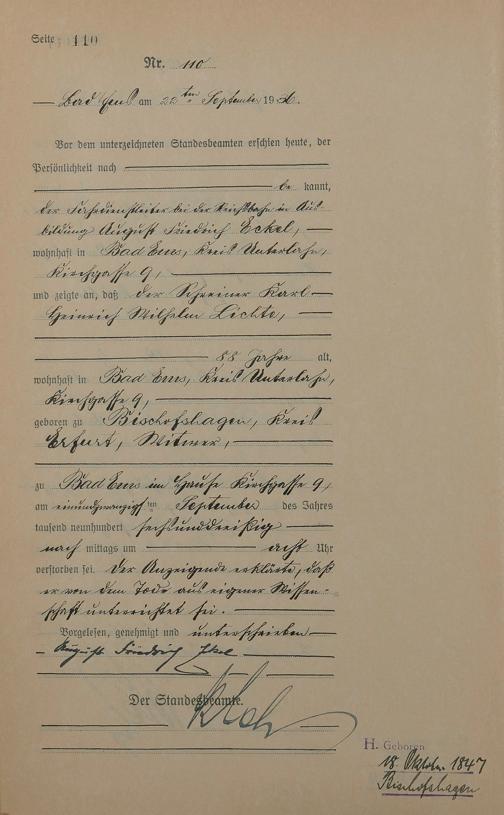 Seite 110
Nr. 110
Bad Ems am 22ten September 1936.
Vor dem unterzeichneten Standesbeamten erschien heute, der
Persönlichkeit nach
be kannt,
der Fahrdienstleiter bei der Reichsbahn in Aus-
bildung August Friedrich Eckel,
wohnhaft in Bad Ems, Kreis Unterlahn,
Kirchgasse 9,
und zeigte an, daß der Schreiner Karl
Heinrich Wilhelm Lichte,
88 Jahre alt,
wohnhaft in Bad Ems, Kreis Unterlahn,
Kirchgasse 9,
geboren zu Bischofshagen, Kreis
Erfurt, Witwer,
zu Bad Ems im Hause Kirchgasse 9,
am einundzwanzigsten September des Jahres
tausend neunhundert sechsunddreißig
nach mittags um acht Uhr
verstorben sei. Der Anzeigende erklärte, daß
er von dem Tode aus eigener Wissen-
schaft unterrichtet sei.
Vorgelesen, genehmigt und unterschrieben
August Friedrich Eckel
Der Standesbeamte.
H. Geboren
18. Oktober 1847
Bischofshagen